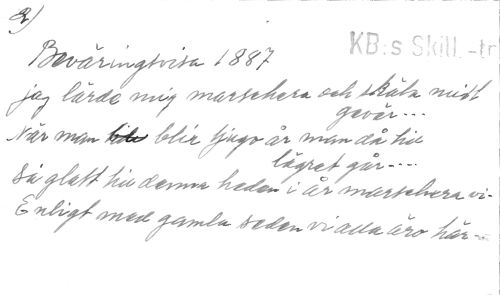 2)
KB:s Skill.-tr
Beväringsvisa 1887
jag lärde mig marschera och sköta mitt
gevär...
När man blir tjugo år man då till
lägret går....
Så glatt till denna heden i år marschera vi-
Enligt med gamla seden vi alla äro här-